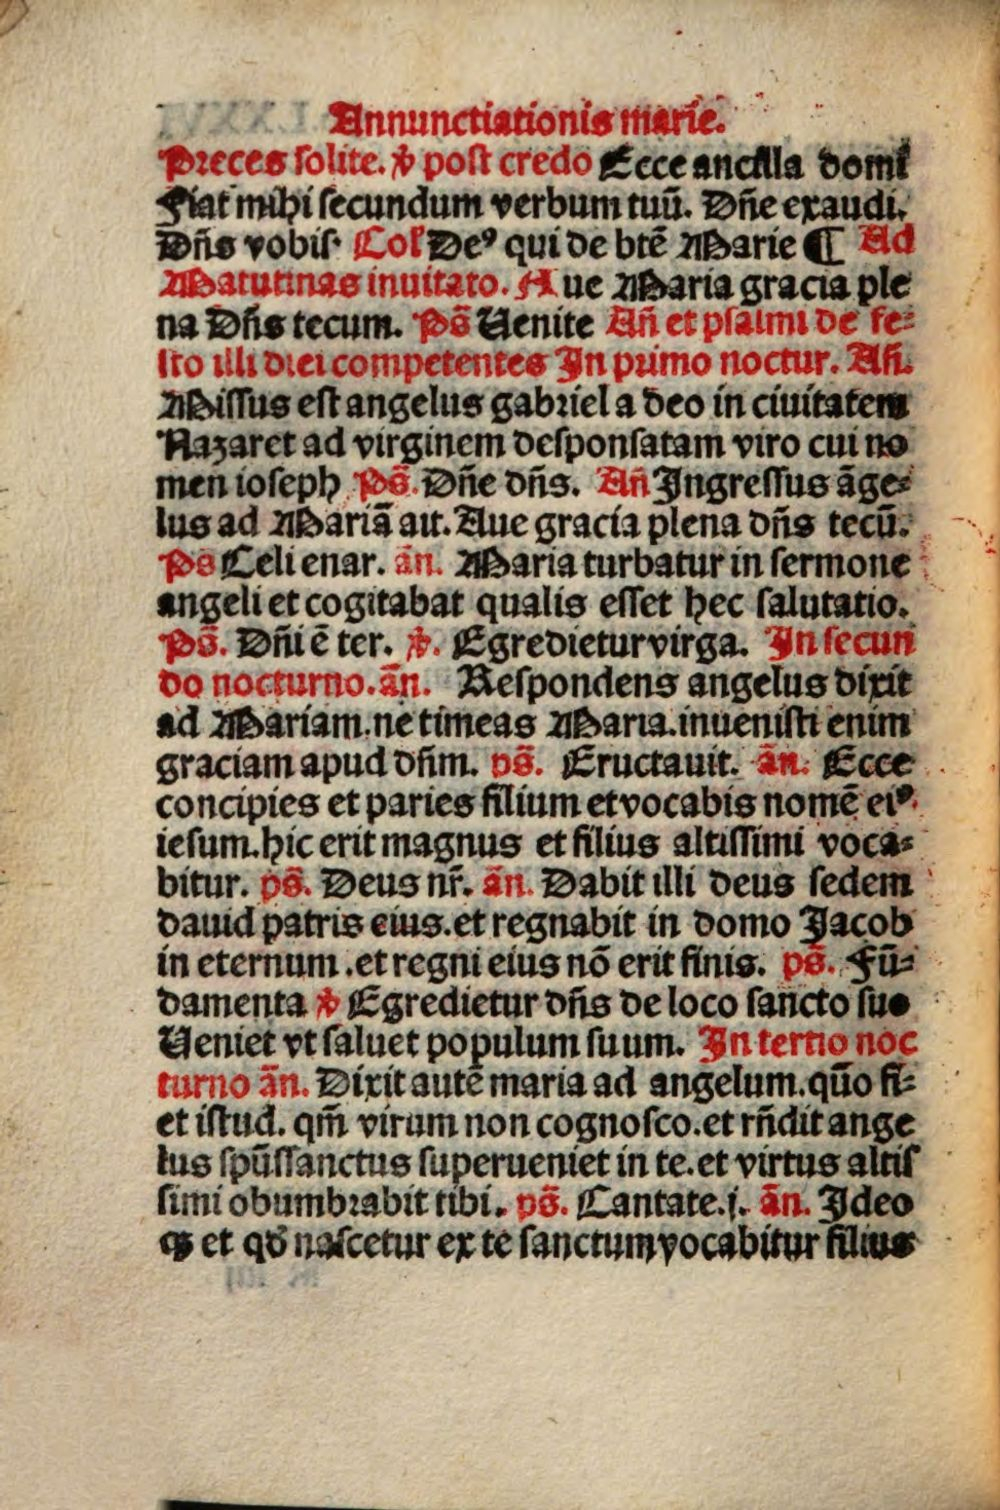 Annunctiationis marie.
Preces solite. ꝟ post credo Ecce ancilla domi
Fiat mihi secundum verbum tuū. Dn̄e exaudi.
Dn̄s vobis. Col̄ Deꝰ qui de btē Marie ¶ Ad
Matutinas inuitato. Aue Maria gracia ple
na Dn̄s tecum. Ps̄ Uenite An̄ et psalmi de fe⸗
sto illi diei competentes In primo noctur. An̄.
Missus est angelus gabriel a deo in ciuitatem
Nazaret ad virginem desponsatam viro cui no
men ioseph Ps̄. Dn̄e dn̄s. An̄ Ingressus āge⸗
lus ad Mariā ait. Aue gracia plena dn̄s tecū.
Ps Celi enar. ān. Maria turbatur in sermone
angeli et cogitabat qualis esset hec salutatio.
Ps̄. Dn̄i ē ter. ꝟ. Egredietur virga. In secun
do nocturno. ān. Respondens angelus dixit
ad Mariam. ne timeas Maria. inuenisti enim
graciam apud dn̄m. ps̄. Eructauit. ān. Ecce
concipies et paries filium et vocabis nomē eiꝰ.
iesum. hic erit magnus et filius altissimi voca⸗
bitur. ps̄. Deus nr̄. ān. Dabit illi deus sedem
dauid patris eius. et regnabit in domo Jacob
in eternum. et regni eius nō erit finis. ps̄. Fū⸗
damenta ꝟ Egredietur dn̄s de loco sancto suo
Ueniet vt saluet populum suum. In tertio noc
turno ān. Dixit autē maria ad angelum. quō fi⸗
et istud. qm̄ virum non cognosco. et rn̄dit ange
lus spūssanctus superueniet in te. et virtus altis
simi obumbrabit tibi. ps̄. Cantate. j. ān. Ideo
qꝫ et qđ nascetur ex te sanctum vocabitur filius